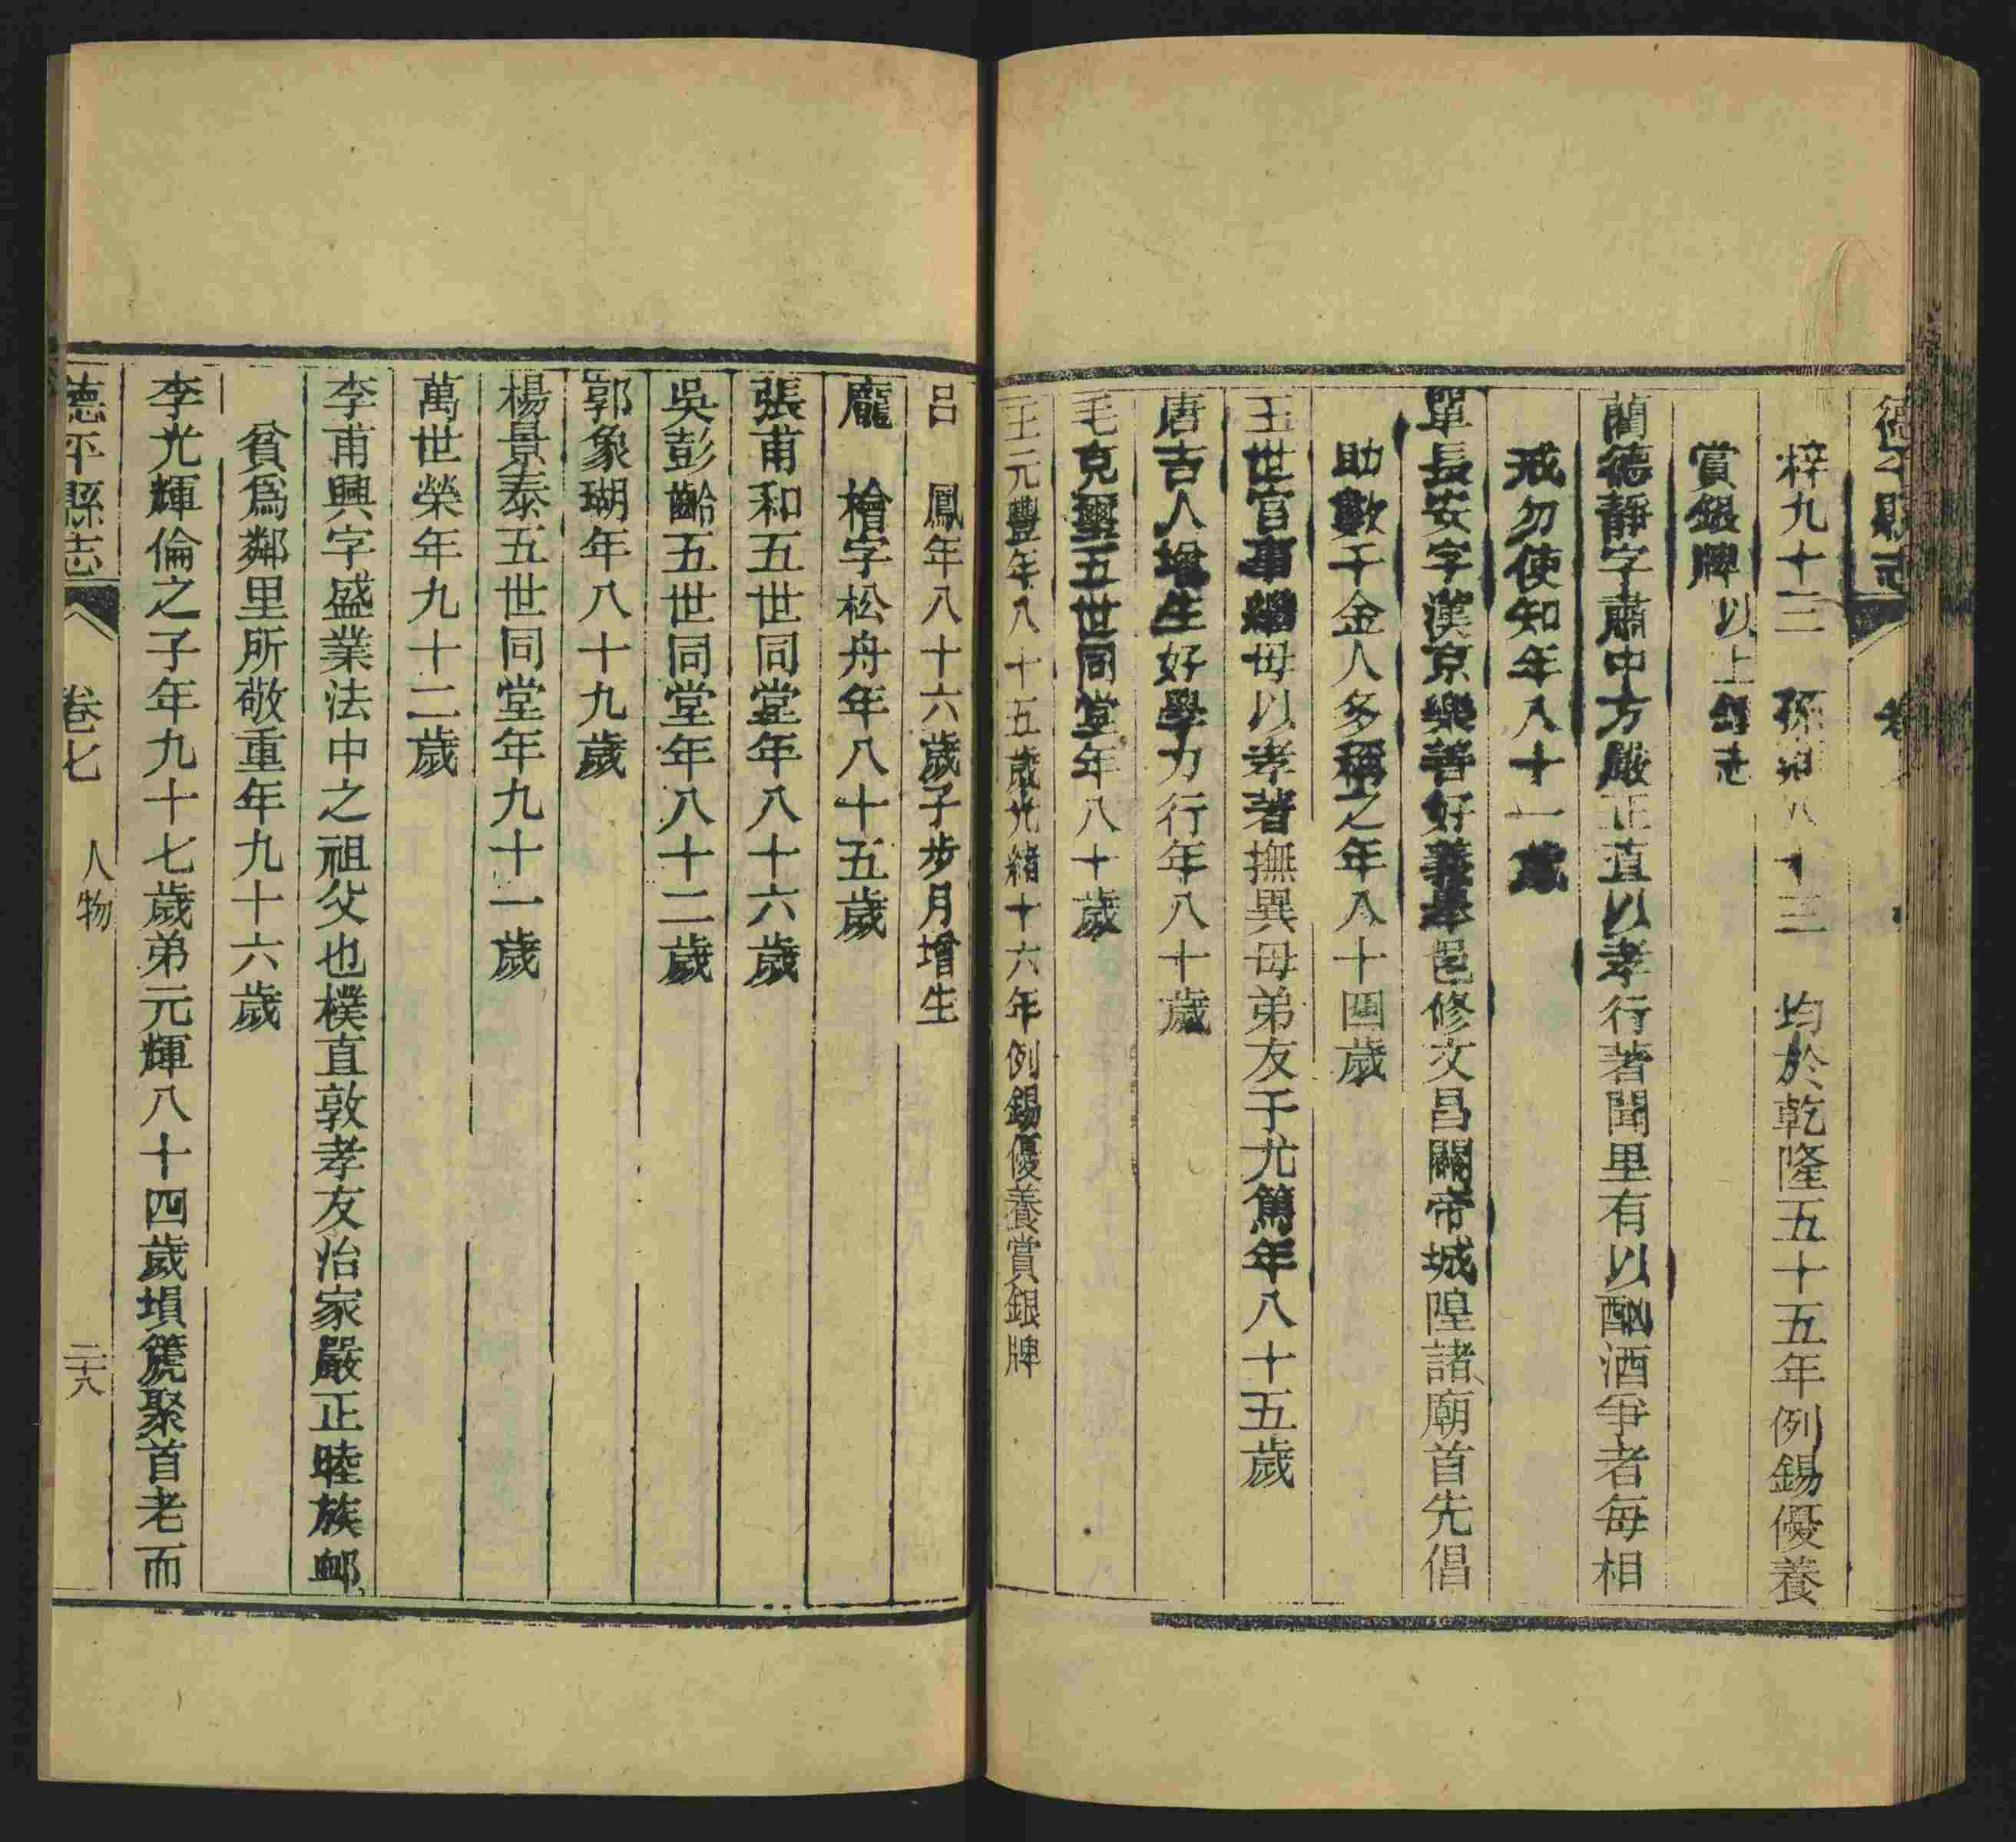 德平縣志 卷
梓九十三 孫 八十三 均於乾隆五十五年例錫優養
賞銀牌 以上舊志
藺德靜字肅中方嚴正直以孝行著聞里有以酗酒爭者每相
戒勿使知年八十一歲
單長安字漢京樂善好義舉邑修文昌關帝城隍諸廟首先倡
助數千金人多稱之年八十四歲
王世官事繼母以孝著撫異母弟友于尤篤年八十五歲
唐吉人增生好學力行年八十歲
毛克璽五世同堂年八十歲
王元豐年八十五歲光緒十六年例錫優養賞銀牌
呂 鳳年八十六歲子步月增生
龐 檜字松舟年八十五歲
張甫和五世同堂年八十六歲
吳彭齡五世同堂年八十二歲
郭象瑚年八十九歲
楊景泰五世同堂年九十一歲
萬世榮年九十二歲
李甫興字盛業法中之祖父也樸直敦孝友治家嚴正睦族䘏
貧爲鄰里所敬重年九十六歲
李光輝倫之子年九十七歲弟元輝八十四歲塤篪聚首老而
德平縣志 卷七 人物 二十八